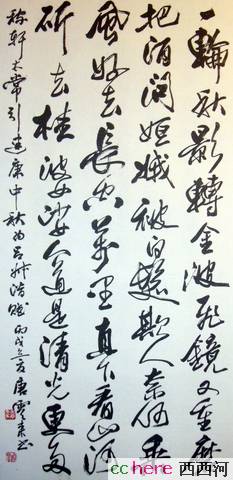 一輪秋影轉金波飛鏡又重磨
把酒問姮娥被白髮欺人奈何乘
風好去長空萬里直下看山河
斫去桂婆娑人道是清光更多
稼軒太常引建康中秋为吕叔潜赋丙戌夏唐雲来书
cchere 西西河